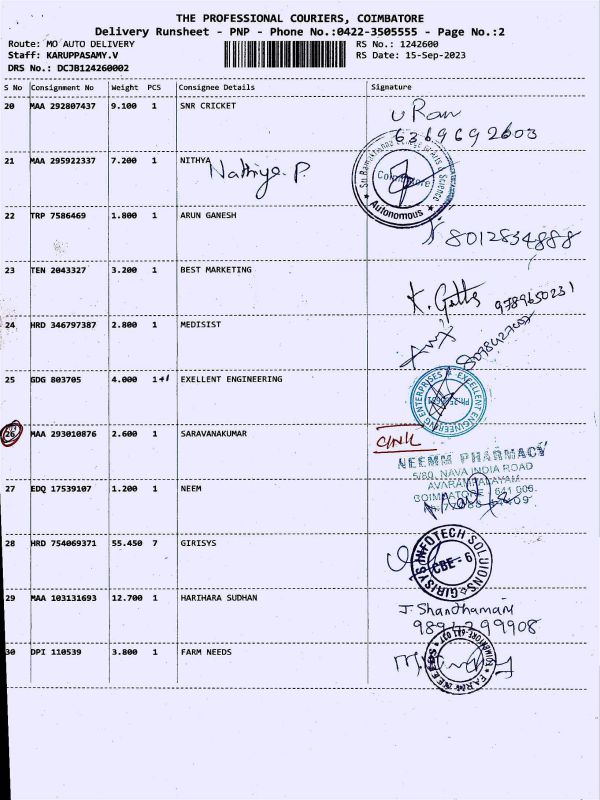 THE PROFESSIONAL COURIERS, COIMBATORE
Delivery Runsheet - PNP - Phone No.:0422-3505555 - Page No.:2
Route: MO AUTO DELIVERY RS No.: 1242600
Staff: KARUPPASAMY.V RS Date: 15-Sep-2023
DRS No.: DCJB124260002
S No Consignment No Weight PCS Consignee Details Signature
20 MAA 292807437 9.100 1 SNR CRICKET
6369692603
21 MAA 295922337 7.200 1 NITHYA
Nathiya. P
Coimbatore
Autonomous
22 TRP 7586469 1.800 1 ARUN GANESH
8012834888
23 TEN 2043327 3.200 1 BEST MARKETING
9789650231
24 HRD 346797387 2.800 1 MEDISIST
25 GDG 803705 4.000 1+1 EXELLENT ENGINEERING
EXELLENT ENGINEERING ENTERPRISES
26 MAA 293010876 2.600 1 SARAVANAKUMAR
NEEMM PHARMACY
5/80, NAVA INDIA ROAD
AVARAMPALAYAM
COIMBATORE - 641 006.
27 EDQ 17539107 1.200 1 NEEM
28 HRD 754069371 55.450 7 GIRISYS
GIRISYS INFOTECH SOLUTIONS
CBE - 6
29 MAA 103131693 12.700 1 HARIHARA SUDHAN
J. Shandhamani
30 DPI 110539 3.800 1 FARM NEEDS